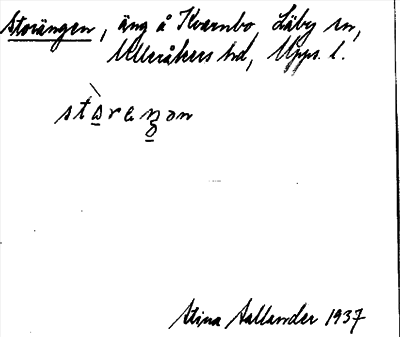 Storängen, äng å Kvarnbo, Läby sn,
Ulleråkers hd, Upps. l.
stòraŋon
Stina Aallander 1937